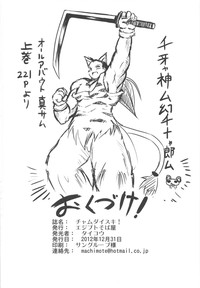 チ牙♡神ム幻チナ十郎ム
オールアバウト真サム
上巻
221Pより
おくづけ!
誌名：チャムダイスキ！
発行：エジプトそば屋
発光者：タイコウ
発行日：2012年12月31日
印刷：サングループ様
連絡先：machimote@hotmail.co.jp